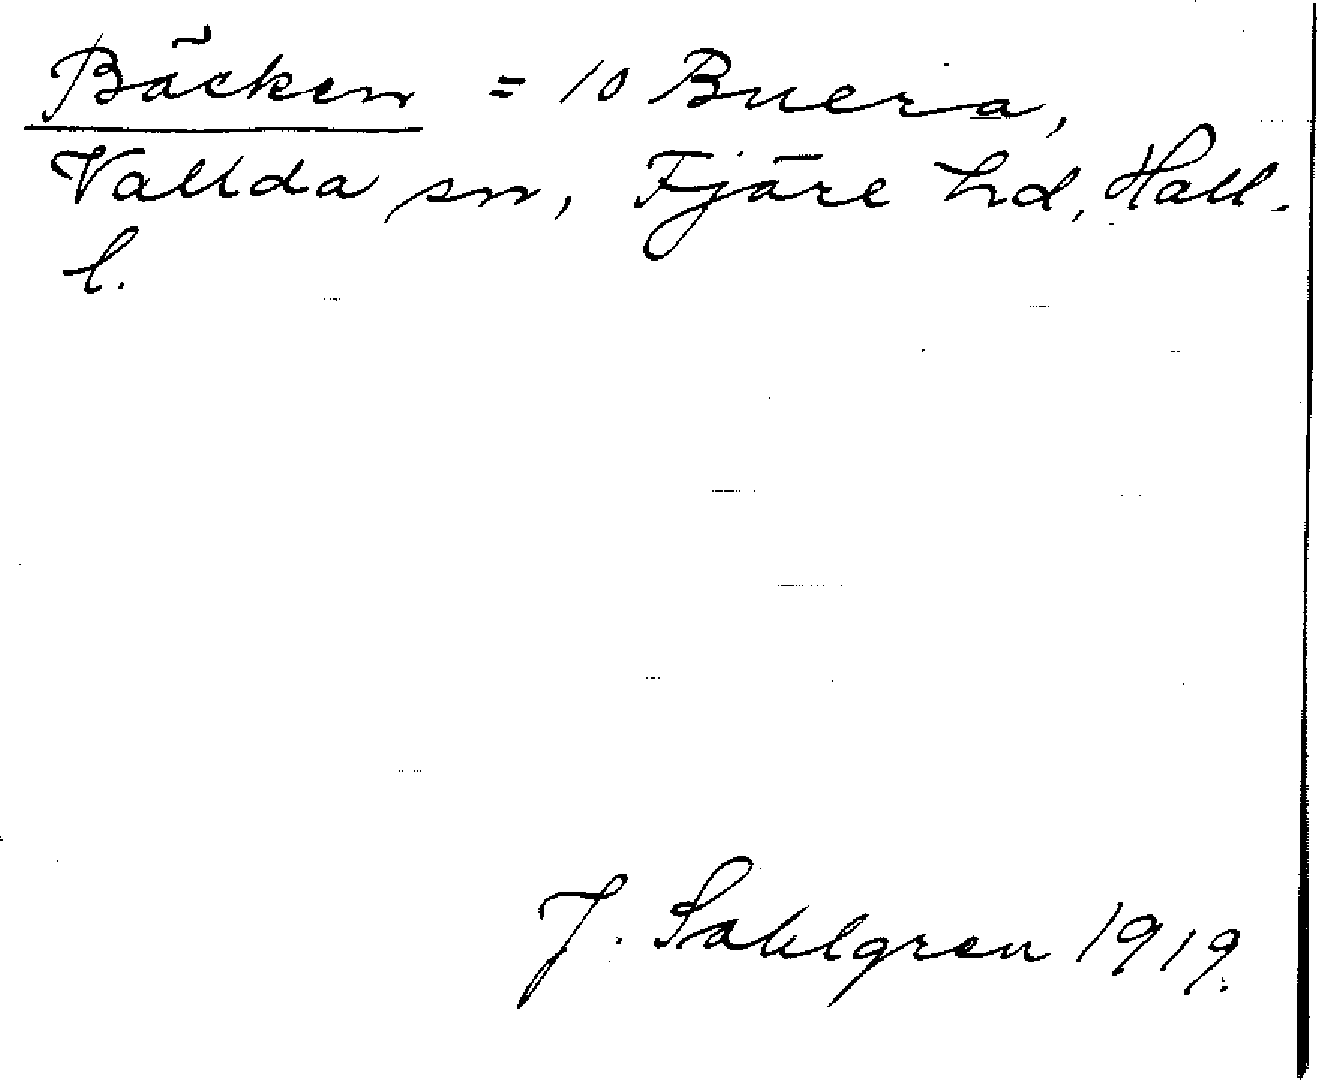 Bäcken = 10 Buera,
Vallda sn, Fjäre hd, Hall.
l.
J. Sahlgren 1919.